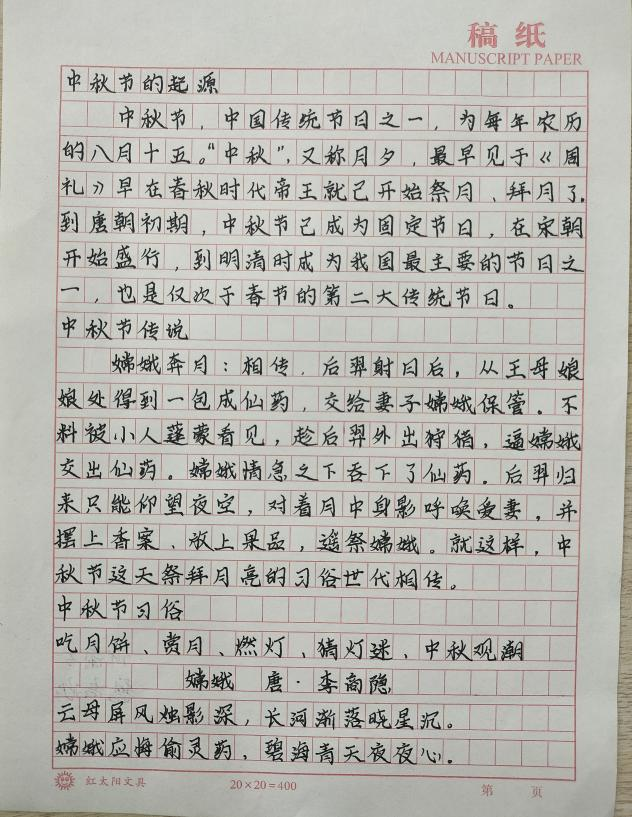 稿纸
MANUSCRIPT PAPER
中秋节的起源
中秋节，中国传统节日之一，为每年农历
的八月十五。“中秋”，又称月夕，最早见于《周
礼》早在春秋时代帝王就已开始祭月、拜月了。
到唐朝初期，中秋节已成为固定节日，在宋朝
开始盛行，到明清时成为我国最主要的节日之
一，也是仅次于春节的第二大传统节日。
中秋节传说
嫦娥奔月：相传，后羿射日后，从王母娘
娘处得到一包成仙药，交给妻子嫦娥保管。不
料被小人蓬蒙看见，趁后羿外出狩猎，逼嫦娥
交出仙药。嫦娥情急之下吞下了仙药。后羿归
来只能仰望夜空，对着月中身影呼唤爱妻，并
摆上香案、放上果品，遥祭嫦娥。就这样，中
秋节这天祭拜月亮的习俗世代相传。
中秋节习俗
吃月饼、赏月、燃灯、猜灯迷、中秋观潮
嫦娥 唐·李商隐
云母屏风烛影深，长河渐落晓星沉。
嫦娥应悔偷灵药，碧海青天夜夜心。
红太阳文具 20×20=400 第 页